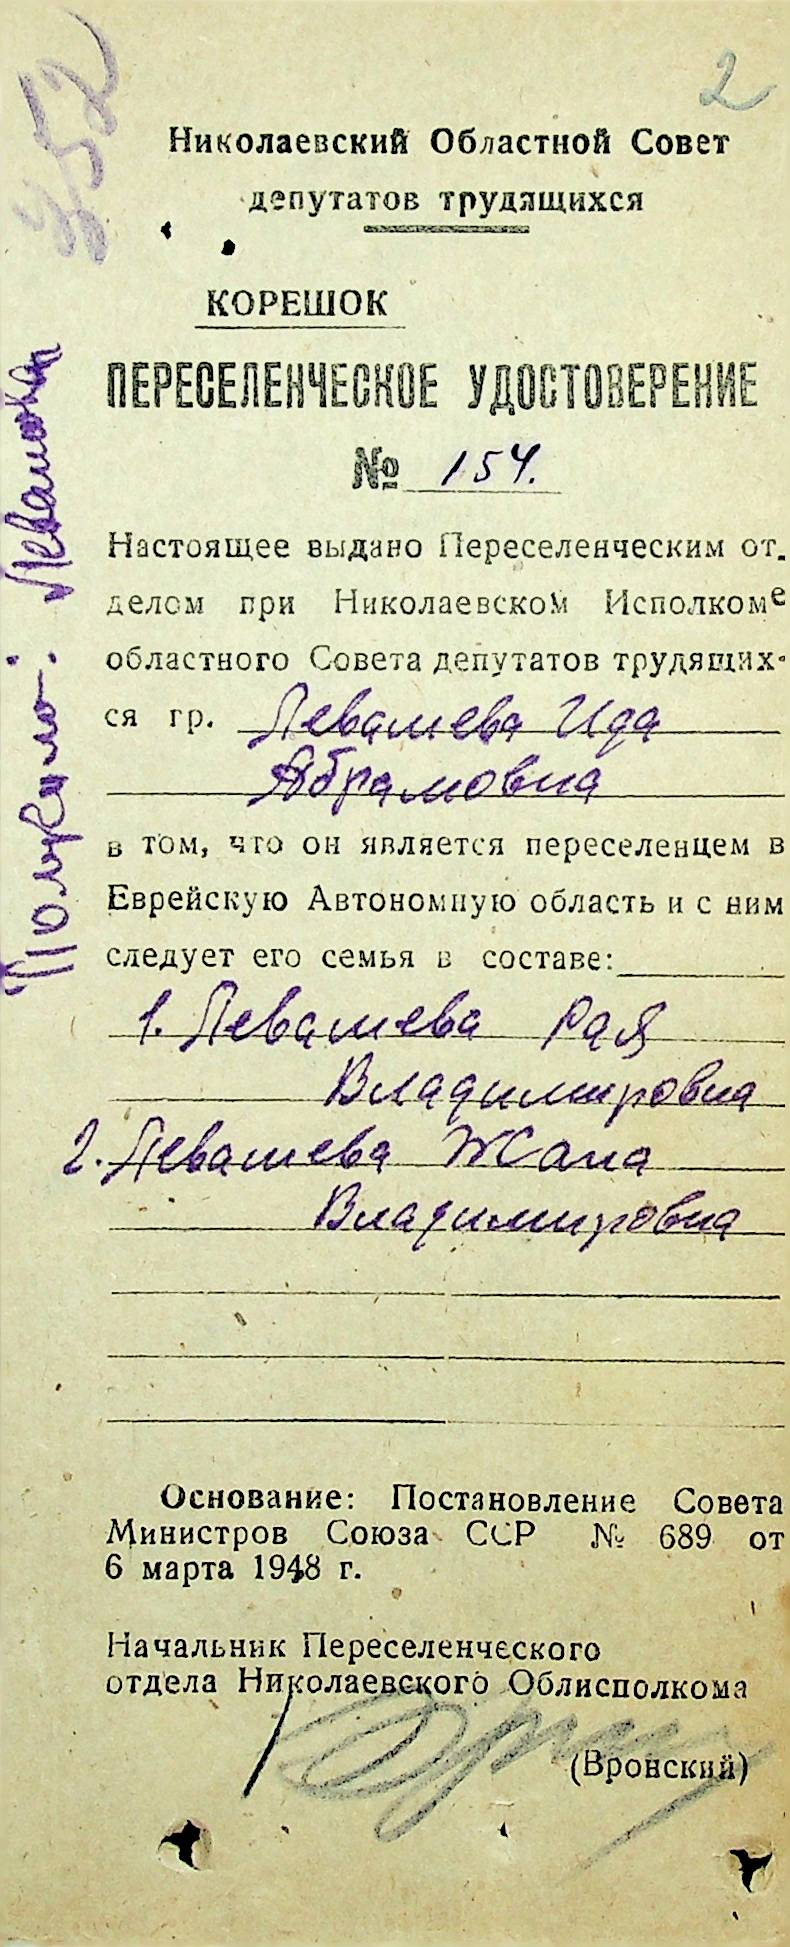 352
2
Николаевский Областной Совет
депутатов трудящихся
КОРЕШОК
ПЕРЕСЕЛЕНЧЕСКОЕ УДОСТОВЕРЕНИЕ
№ 154.
Настоящее выдано Переселенческим от.
делом при Николаевском Исполкоме
областного Совета депутатов трудящих-
ся гр. Левашева Ида
Абрамовна
в том, что он является переселенцем в
Еврейскую Автономную область и с ним
следует его семья в составе:
1. Левашева Рая
Владимировна
2. Левашева Жана
Владимировна
Основание: Постановление Совета
Министров Союза ССР № 689 от
6 марта 1948 г.
Начальник Переселенческого
отдела Николаевского Облисполкома
(Вронский)